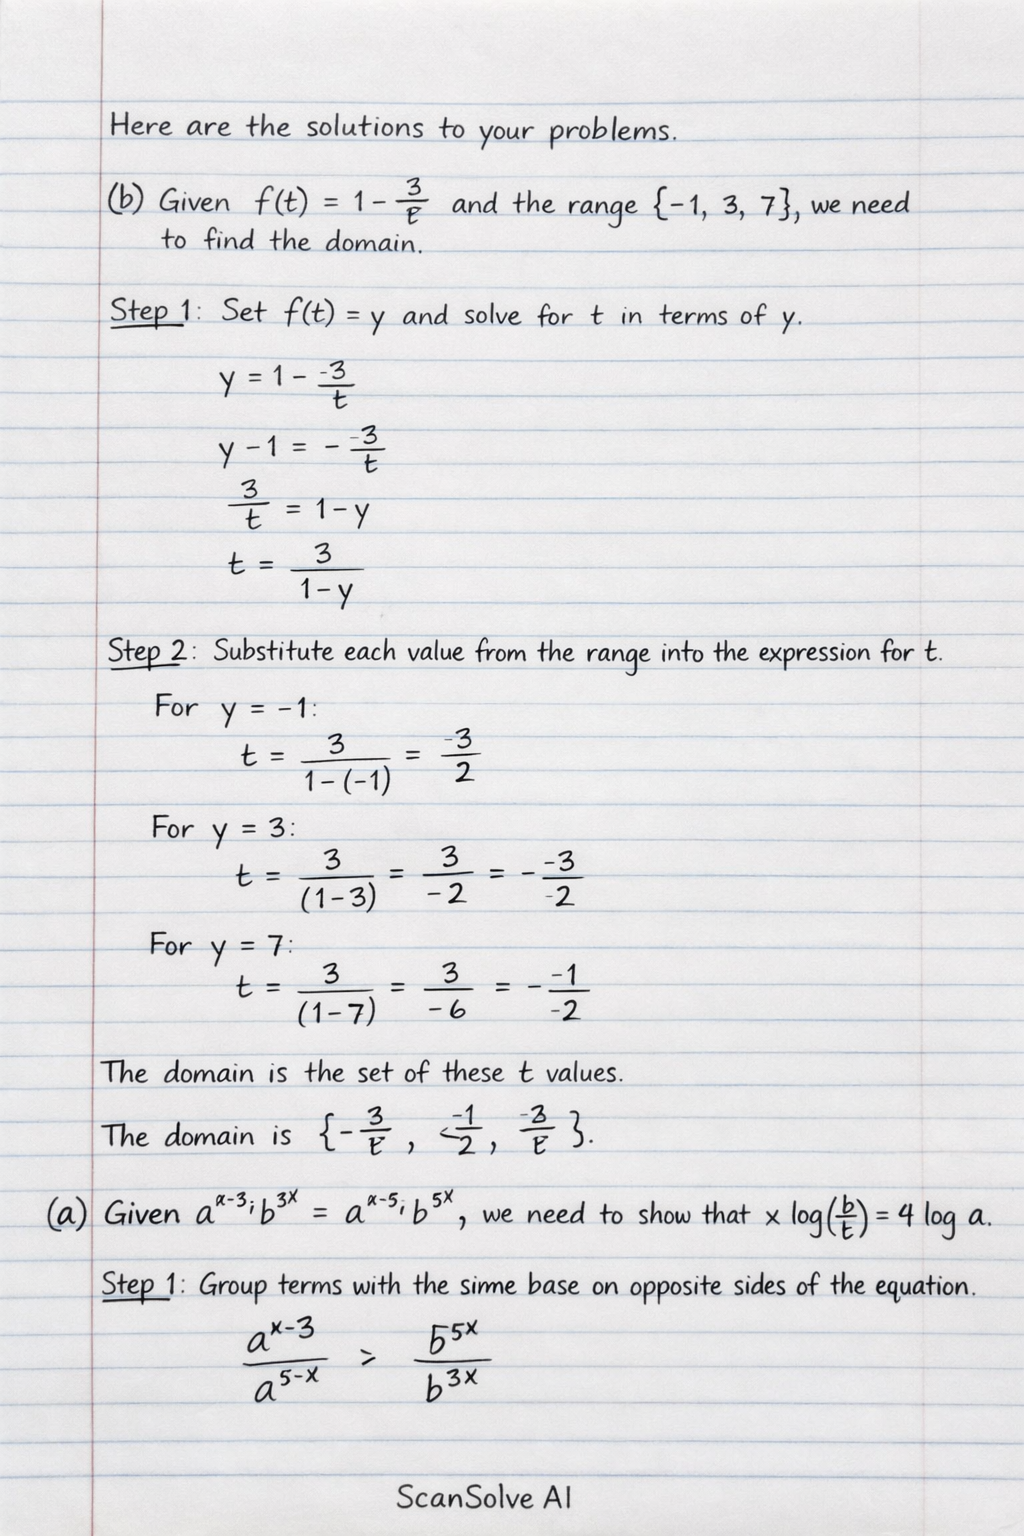 Here are the solutions to your problems.
(b) Given f(t) = 1 - 3/t and the range {-1, 3, 7}, we need
to find the domain.
Step 1: Set f(t) = y and solve for t in terms of y.
y = 1 - -3/t
y - 1 = - -3/t
3/t = 1 - y
t = 3/(1 - y)
Step 2: Substitute each value from the range into the expression for t.
For y = -1:
t = 3/(1 - (-1)) = -3/2
For y = 3:
t = 3/(1 - 3) = 3/-2 = - -3/-2
For y = 7:
t = 3/(1 - 7) = 3/-6 = - -1/-2
The domain is the set of these t values.
The domain is {- 3/t, -1/2, -3/t}.
(a) Given a^(x-3); b^(3x) = a^(x-5); b^(5x), we need to show that x log(b/t) = 4 log a.
Step 1: Group terms with the sime base on opposite sides of the equation.
a^(x-3)/a^(5-x) > b^(5x)/b^(3x)
ScanSolve AI